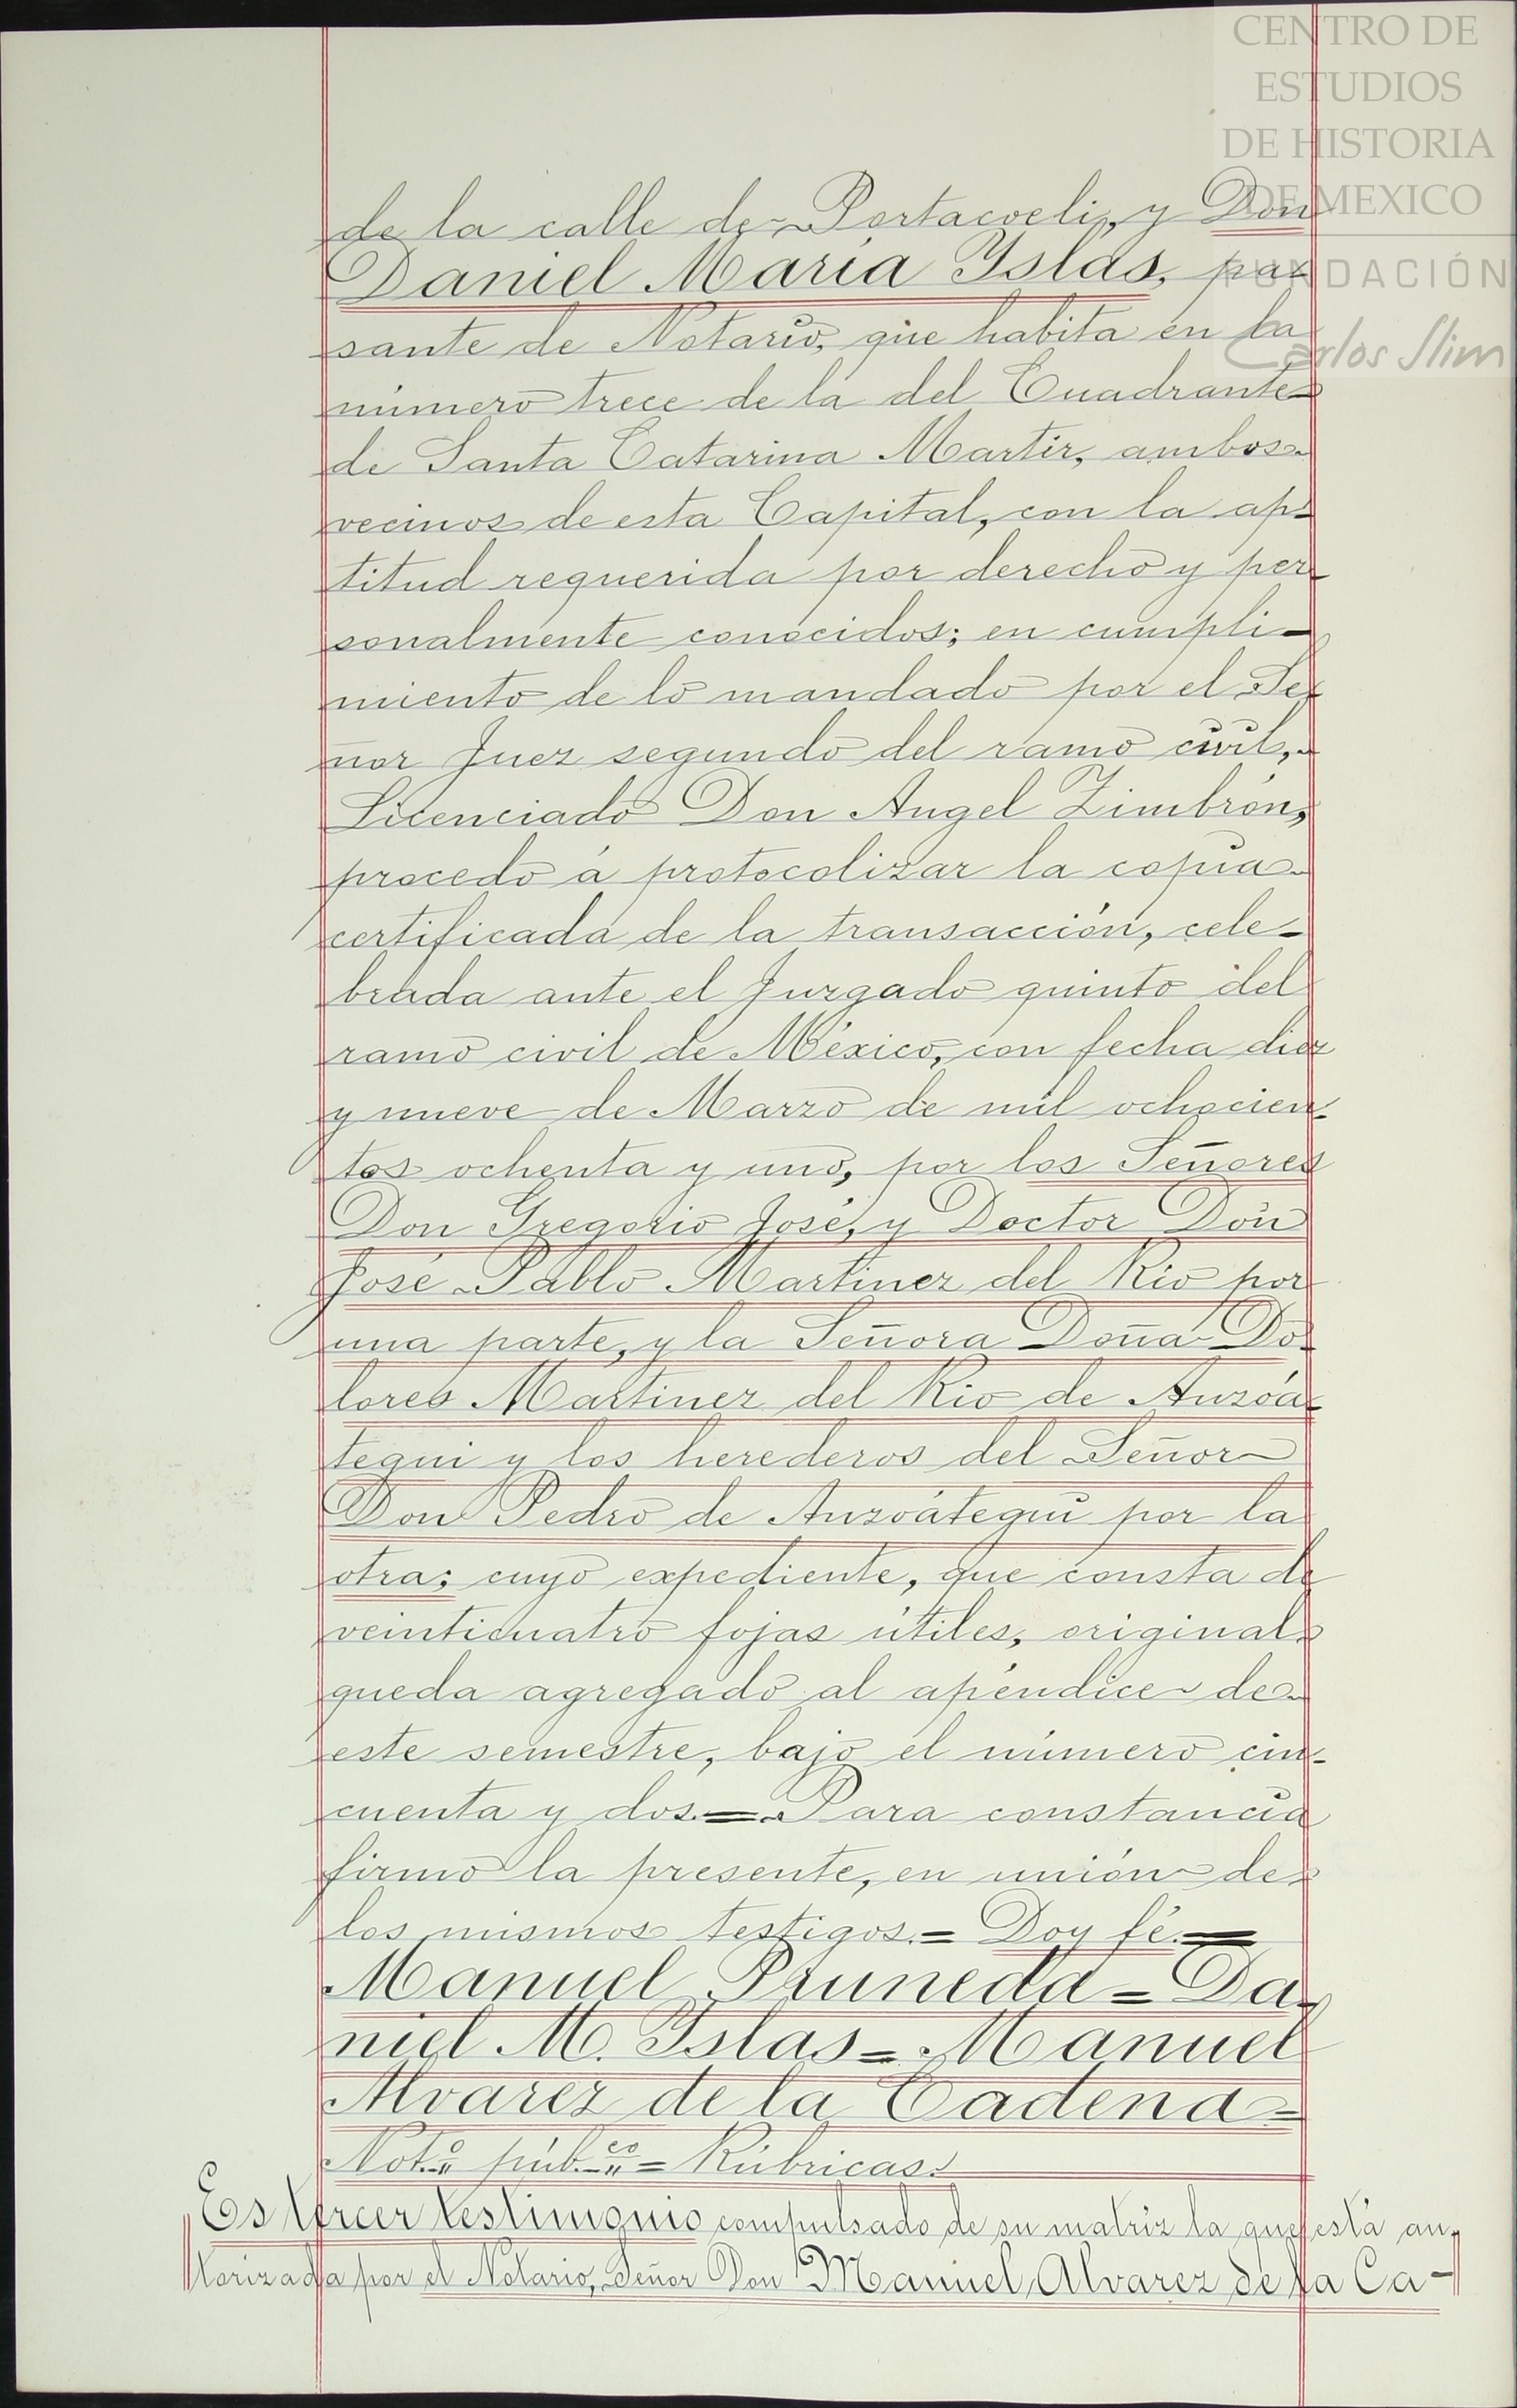 CENTRO DE
ESTUDIOS
DE HISTORIA
DE MEXICO
FUNDACIÓN
Carlos Slim
de la calle de Portacoeli, y Don
Daniel María Yslas, pa-
sante de Notario, que habita en la
número trece de la del Cuadrante
de Santa Catarina Martir, ambos
vecinos de esta Capital, con la ap-
titud requerida por derecho y per-
sonalmente conocidos; en cumpli-
miento de lo mandado por el Se-
ñor Juez segundo del ramo civil,
Licenciado Don Angel Zimbrón,
procedo á protocolizar la copia
certificada de la transacción, cele-
brada ante el Juzgado quinto del
ramo civil de México, con fecha diez
y nueve de Marzo de mil ochocien-
tos ochenta y uno, por los Señores
Don Gregorio José, y Doctor Don
José Pablo Martinez del Rio por
una parte, y la Señora Doña Do-
lores Martinez del Rio de Anzoá-
tegui y los herederos del Señor
Don Pedro de Anzoátegui por la
otra; cuyo expediente, que consta de
veinticuatro fojas útiles, original
queda agregado al apéndice de
este semestre, bajo el número cin-
cuenta y dos.= Para constancia
firmo la presente, en unión de
los mismos testigos.= Doy fé.=
Manuel Pruneda = Da-
niel M. Yslas = Manuel
Alvarez de la Cadena =
Not.º púb.co = Rúbricas.
Es tercer testimonio compulsado de su matriz la que está au-
torizada por el Notario, Señor Don Manuel Alvarez de la Ca-